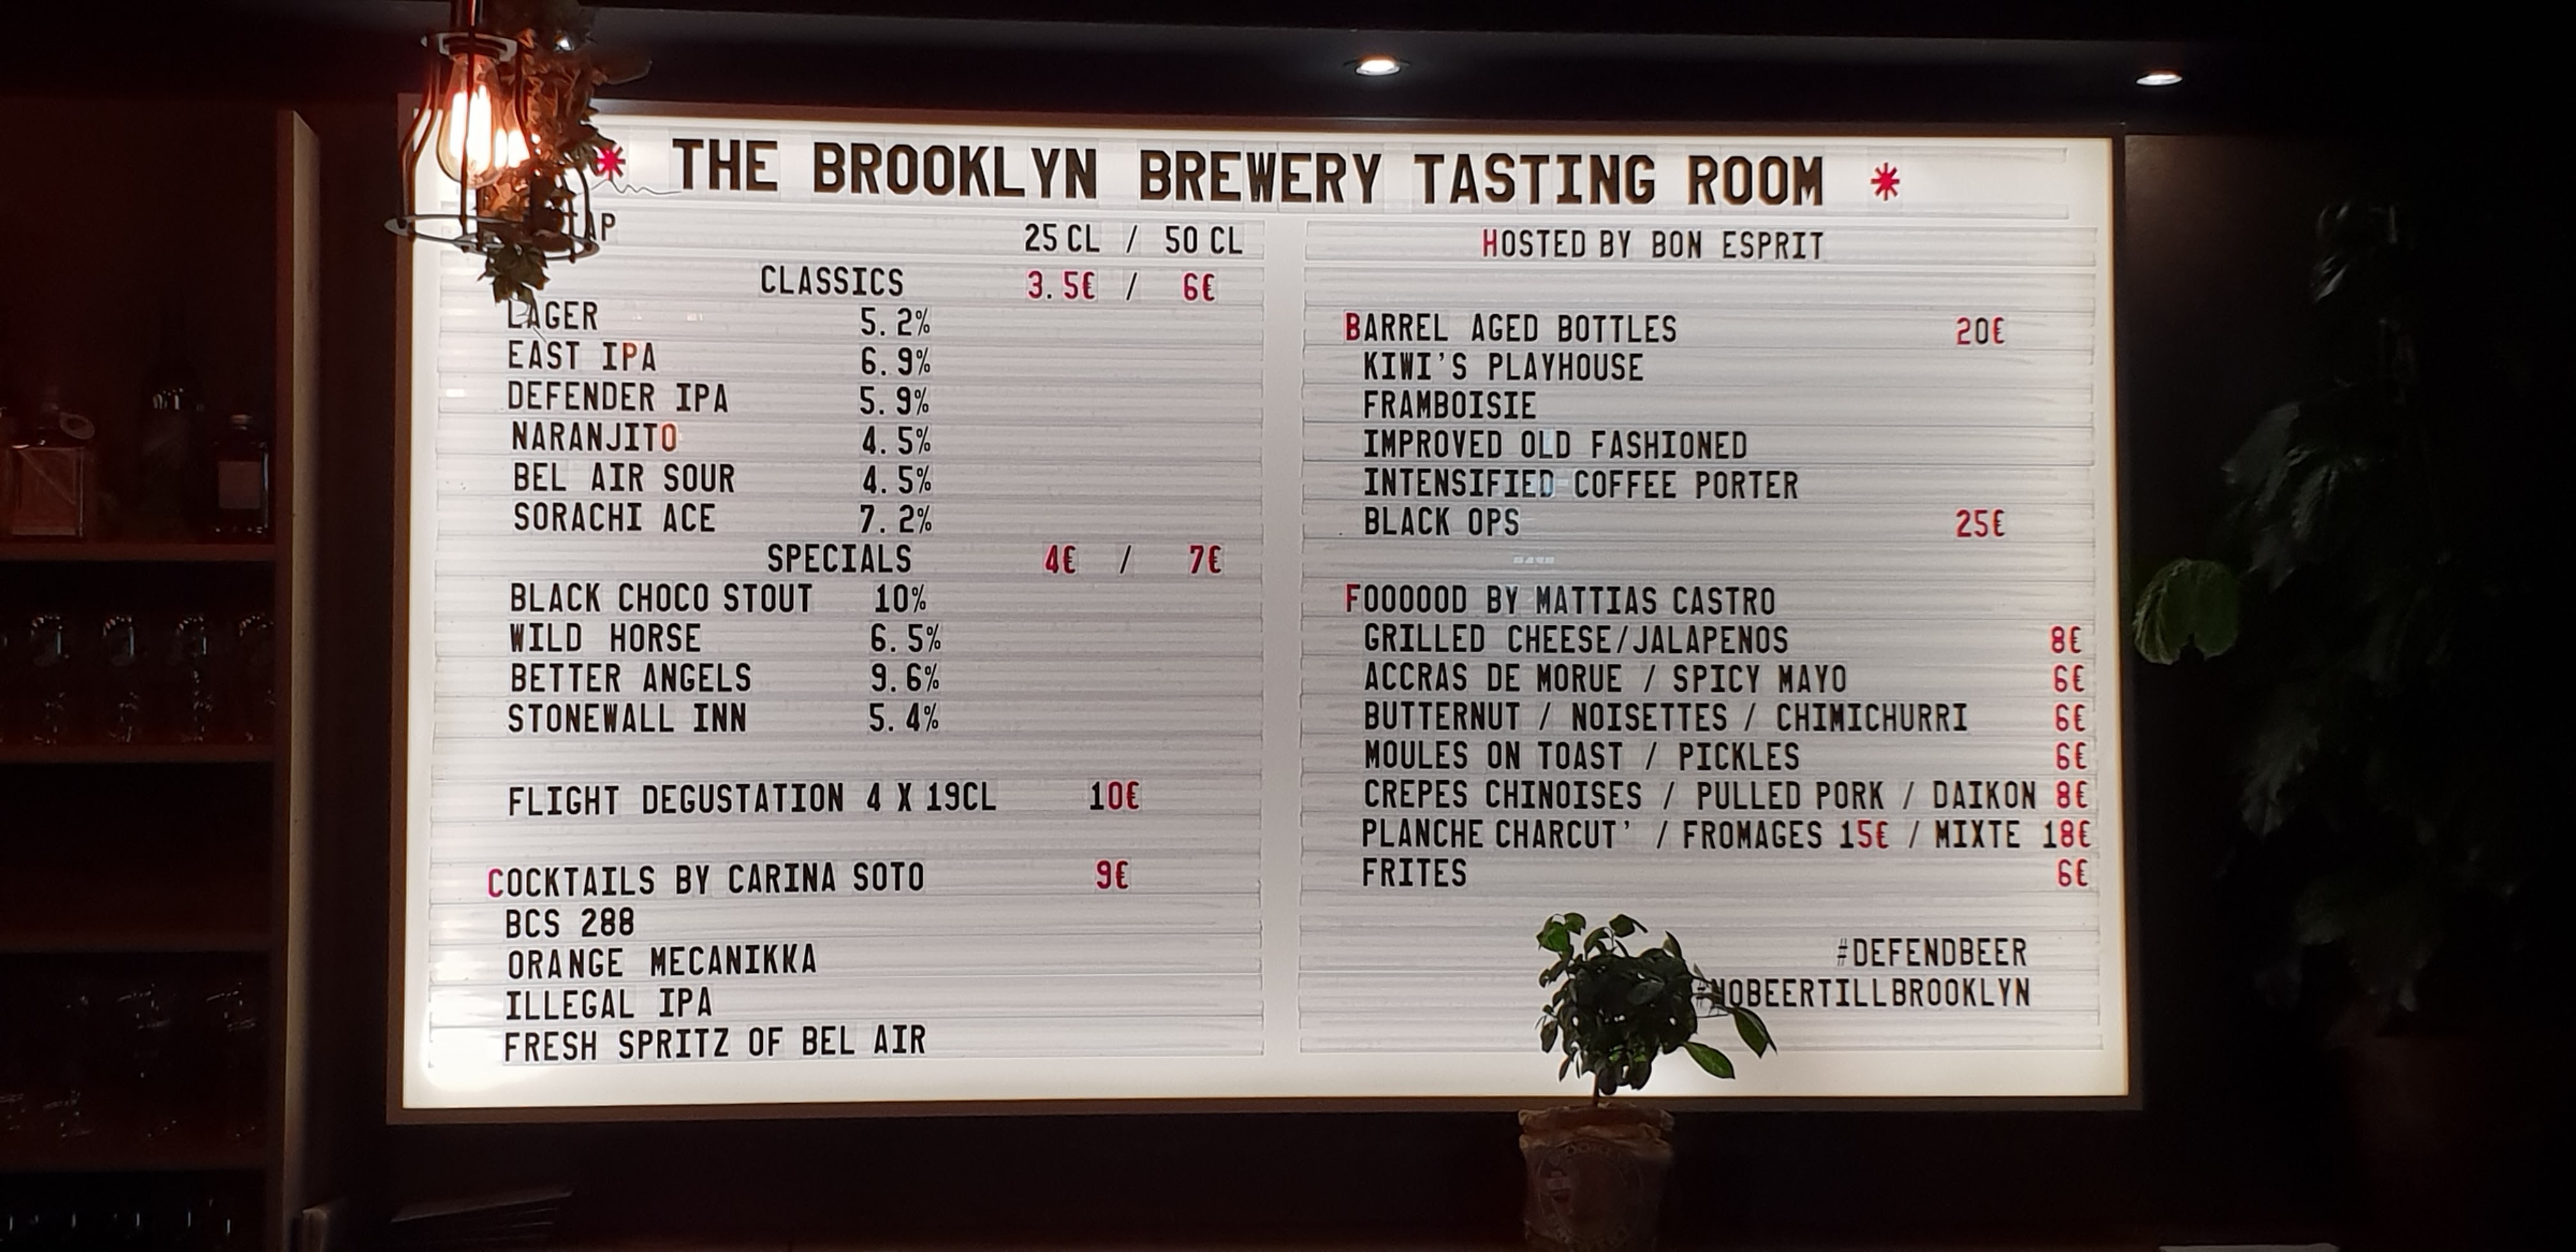 * THE BROOKLYN BREWERY TASTING ROOM *
25 CL / 50 CL
CLASSICS 3.5€ / 6€
LAGER 5.2%
EAST IPA 6.9%
DEFENDER IPA 5.9%
NARANJITO 4.5%
BEL AIR SOUR 4.5%
SORACHI ACE 7.2%
SPECIALS 4€ / 7€
BLACK CHOCO STOUT 10%
WILD HORSE 6.5%
BETTER ANGELS 9.6%
STONEWALL INN 5.4%
FLIGHT DEGUSTATION 4 X 19CL 10€
COCKTAILS BY CARINA SOTO 9€
BCS 288
ORANGE MECANIKKA
ILLEGAL IPA
FRESH SPRITZ OF BEL AIR
HOSTED BY BON ESPRIT
BARREL AGED BOTTLES 20€
KIWI'S PLAYHOUSE
FRAMBOISIE
IMPROVED OLD FASHIONED
INTENSIFIED COFFEE PORTER
BLACK OPS 25€
FOOOOOD BY MATTIAS CASTRO
GRILLED CHEESE/JALAPENOS 8€
ACCRAS DE MORUE / SPICY MAYO 6€
BUTTERNUT / NOISETTES / CHIMICHURRI 6€
MOULES ON TOAST / PICKLES 6€
CREPES CHINOISES / PULLED PORK / DAIKON 8€
PLANCHE CHARCUT' / FROMAGES 15€ / MIXTE 18€
FRITES 6€
#DEFENDBEER
#NOBEERTILLBROOKLYN